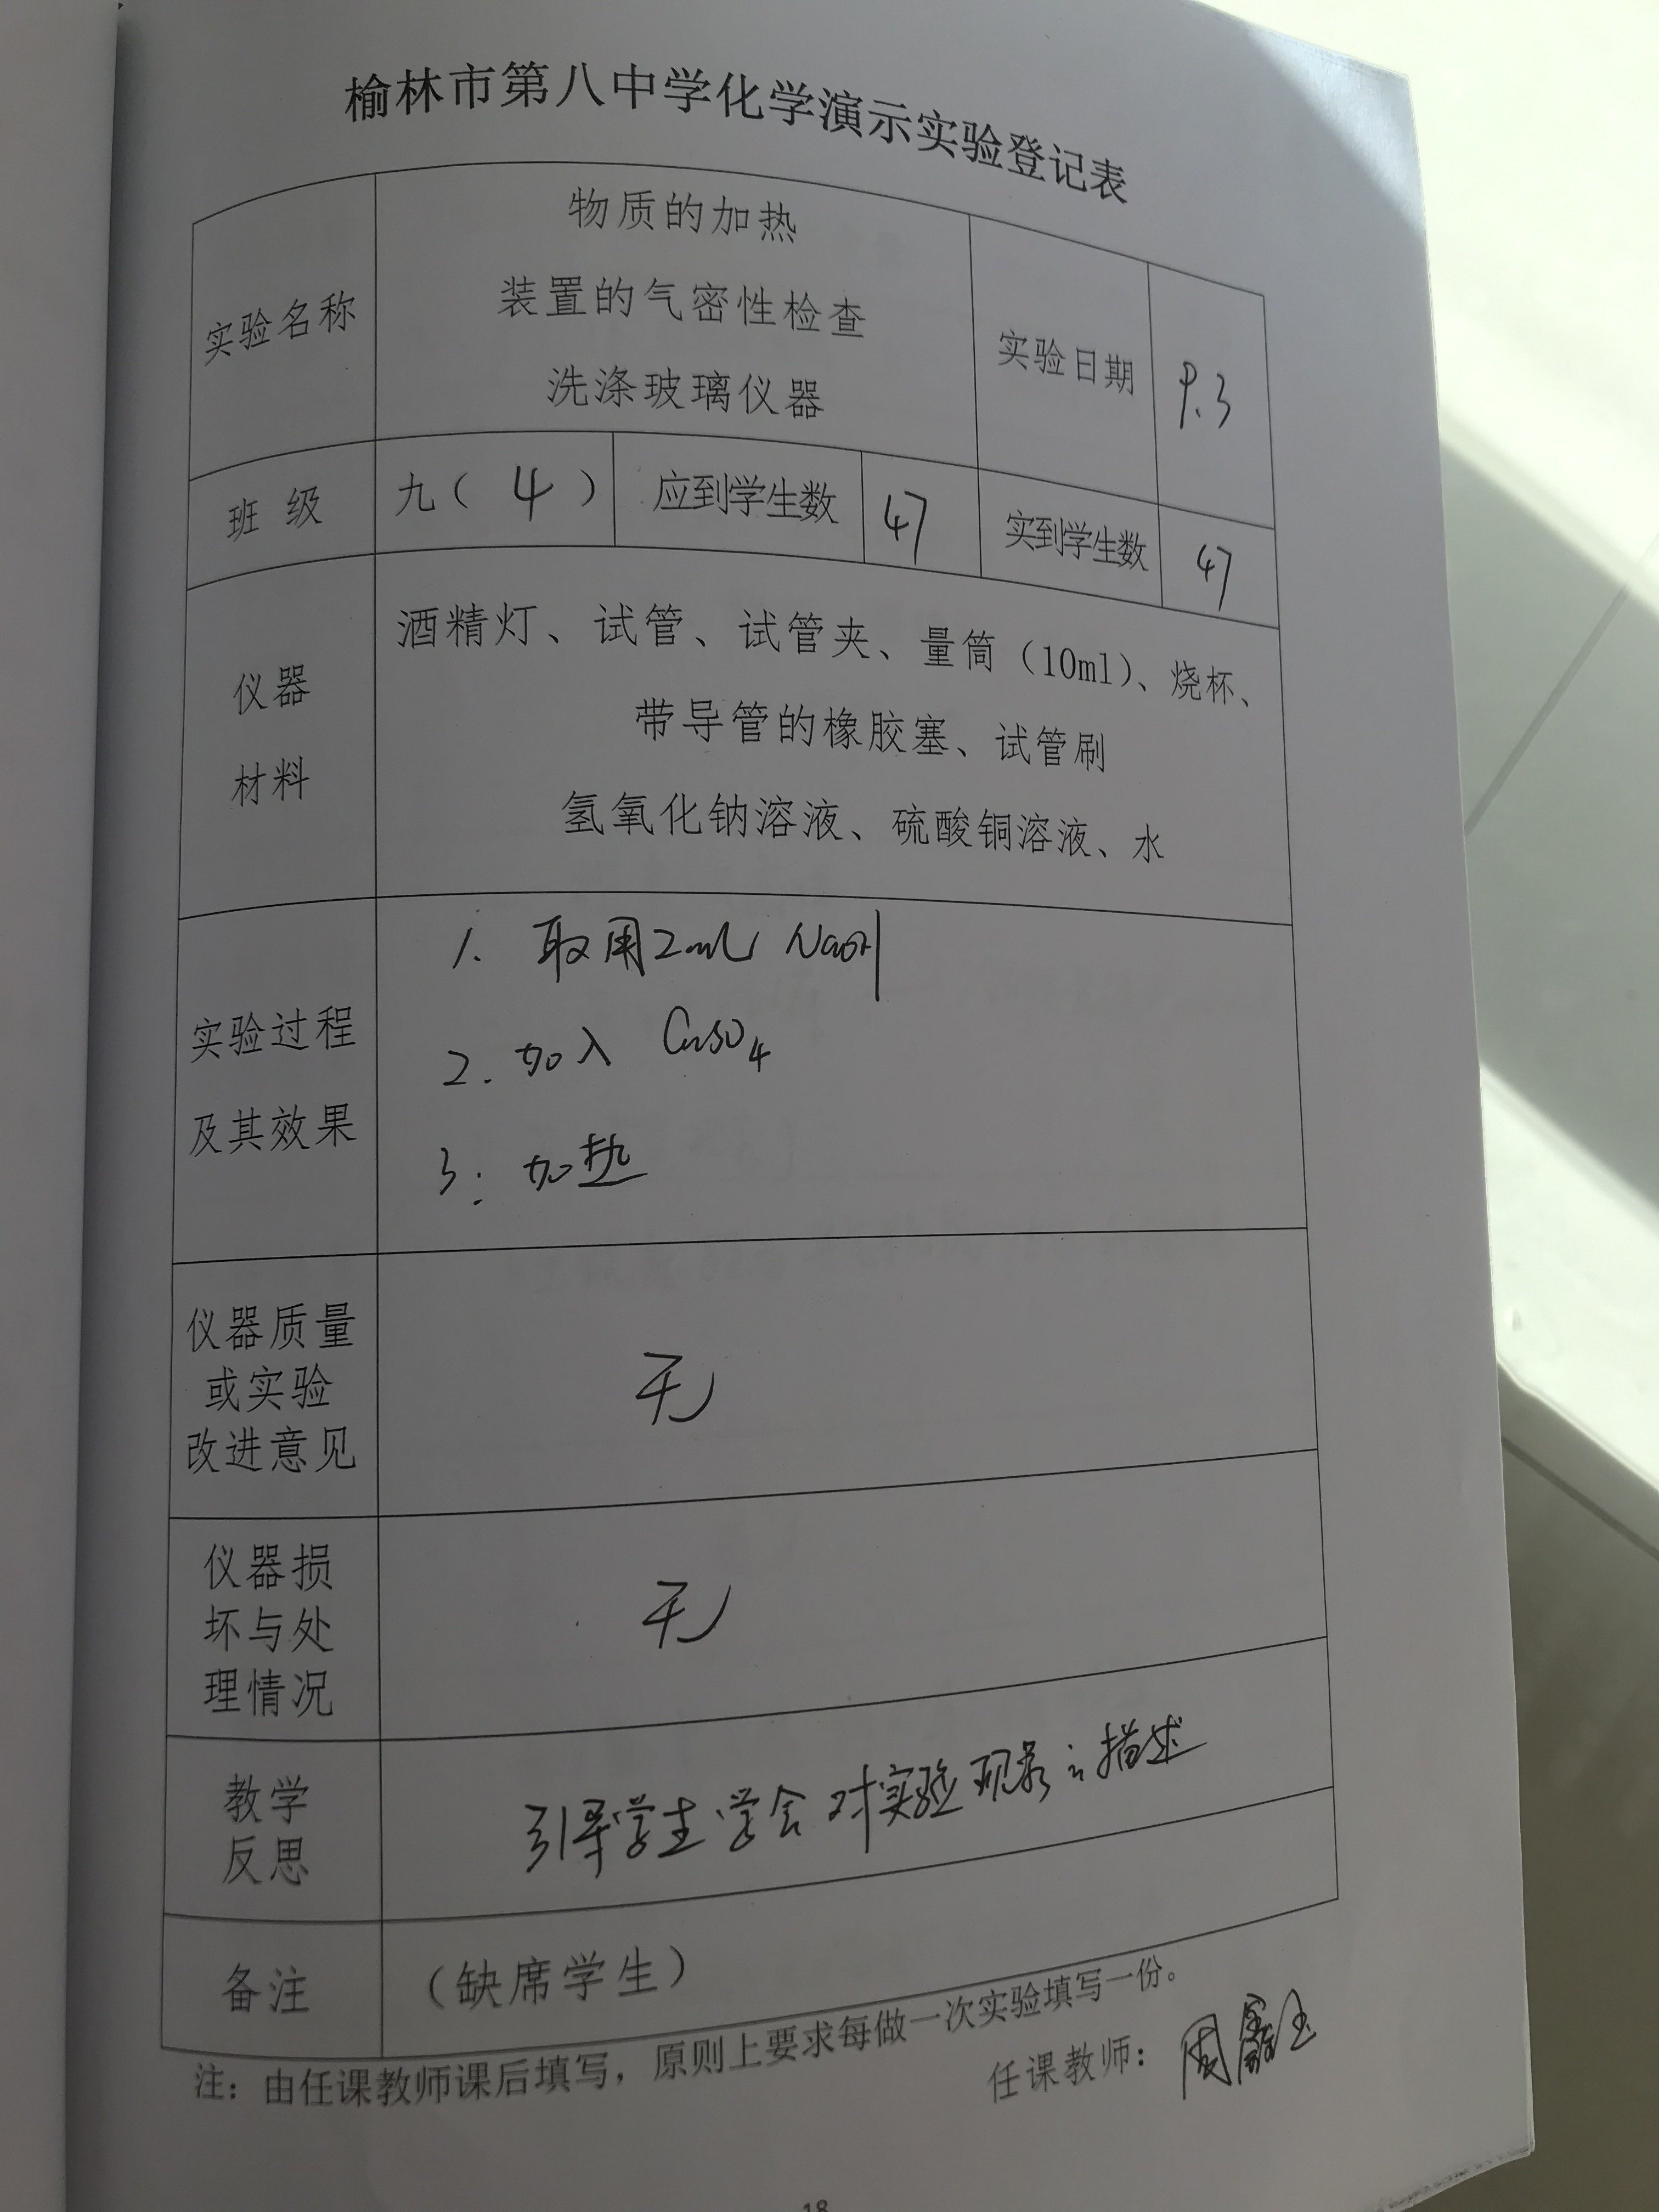 榆林市第八中学化学演示实验登记表
实验名称
物质的加热
装置的气密性检查
洗涤玻璃仪器
实验日期
9.3
班 级
九（ 4 ）
应到学生数
47
实到学生数
47
仪器
材料
酒精灯、试管、试管夹、量筒（10ml）、烧杯、
带导管的橡胶塞、试管刷
氢氧化钠溶液、硫酸铜溶液、水
实验过程
及其效果
1. 取用2mL NaOH
2. 加入 CuSO4
3. 加热
仪器质量
或实验
改进意见
无
仪器损
坏与处
理情况
无
教学
反思
引导学生学会对实验现象的描述
备注
（缺席学生）
注：由任课教师课后填写，原则上要求每做一次实验填写一份。
任课教师：周鑫玉
18